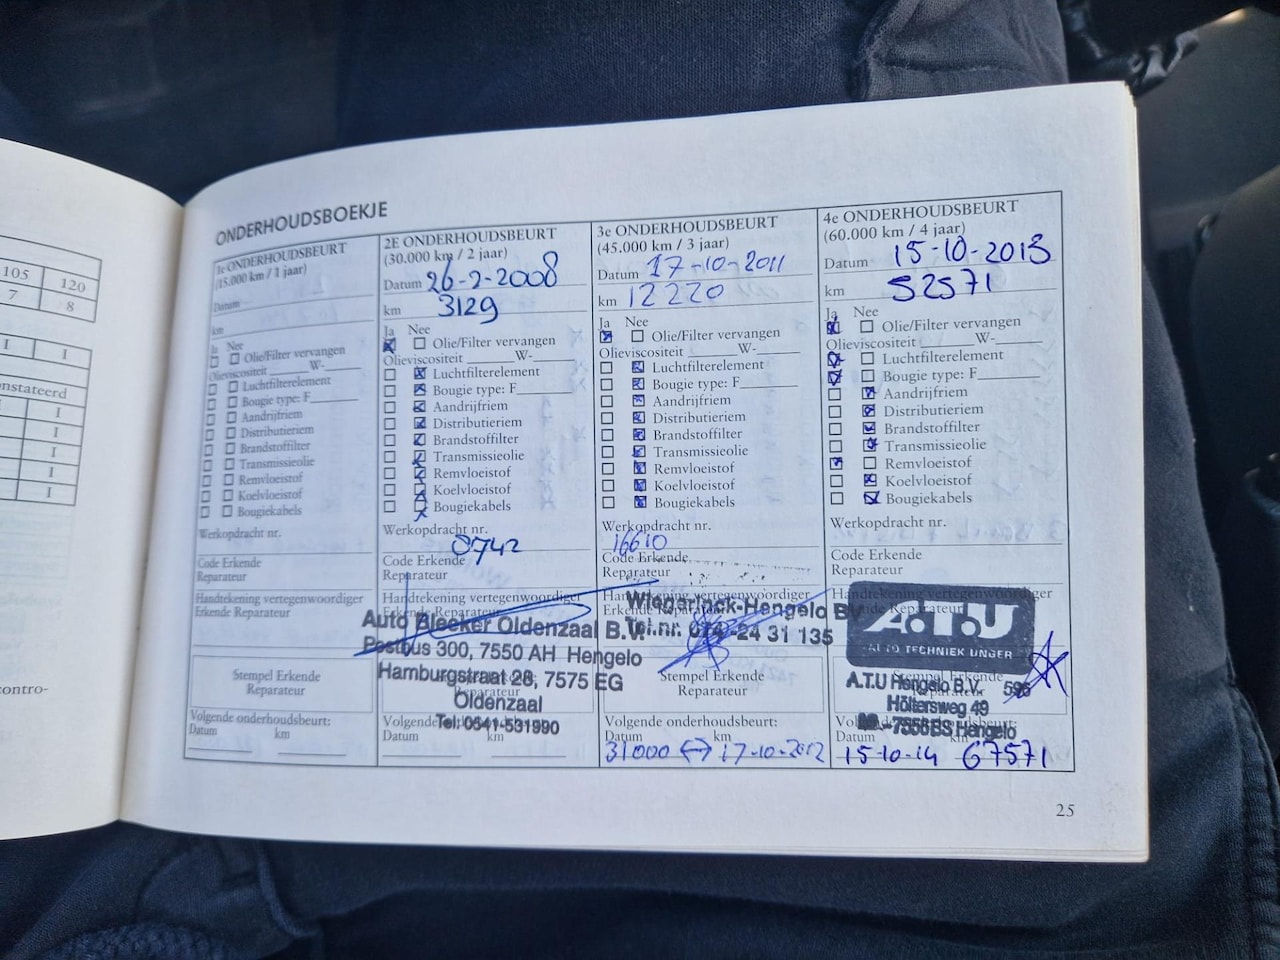 105
120
7
8
I
I
onstateerd
I
I
I
I
I
I
I
I
I
contro-
ONDERHOUDSBOEKJE
1e ONDERHOUDSBEURT
(15.000 km / 1 jaar)
Datum
km
Ja Nee
Olie/Filter vervangen
Olieviscositeit ______W-_____
Luchtfilterelement
Bougie type: F________
Aandrijfriem
Distributieriem
Brandstoffilter
Transmissieolie
Remvloeistof
Koelvloeistof
Bougiekabels
Werkopdracht nr.
Code Erkende
Reparateur
Handtekening vertegenwoordiger
Erkende Reparateur
Stempel Erkende
Reparateur
Volgende onderhoudsbeurt:
Datum km
2E ONDERHOUDSBEURT
(30.000 km / 2 jaar)
Datum 26-2-2008
km 3129
Ja Nee
Olie/Filter vervangen
Olieviscositeit ______W-_____
Luchtfilterelement
Bougie type: F________
Aandrijfriem
Distributieriem
Brandstoffilter
Transmissieolie
Remvloeistof
Koelvloeistof
Bougiekabels
Werkopdracht nr.
0742
Code Erkende
Reparateur
Handtekening vertegenwoordiger
Erkende Reparateur
Auto Bleeker Oldenzaal B.V.
Postbus 300, 7550 AH Hengelo
Hamburgstraat 28, 7575 EG
Reparateur
Oldenzaal
Tel: 0541-531990
Volgende
Datum km
3e ONDERHOUDSBEURT
(45.000 km / 3 jaar)
Datum 17-10-2011
km 12220
Ja Nee
Olie/Filter vervangen
Olieviscositeit ______W-_____
Luchtfilterelement
Bougie type: F________
Aandrijfriem
Distributieriem
Brandstoffilter
Transmissieolie
Remvloeistof
Koelvloeistof
Bougiekabels
Werkopdracht nr.
16610
Code Erkende
Reparateur
Handtekening vertegenwoordiger
Wiegerinck-Hengelo BV
Tel.nr. 074-24 31 135
Stempel Erkende
Reparateur
Volgende onderhoudsbeurt:
Datum km
31000 <-> 17-10-2012
4e ONDERHOUDSBEURT
(60.000 km / 4 jaar)
Datum 15-10-2013
km 52571
Ja Nee
Olie/Filter vervangen
Olieviscositeit ______W-_____
Luchtfilterelement
Bougie type: F________
Aandrijfriem
Distributieriem
Brandstoffilter
Transmissieolie
Remvloeistof
Koelvloeistof
Bougiekabels
Werkopdracht nr.
Code Erkende
Reparateur
Handtekening vertegenwoordiger
Erkende Reparateur
A.T.U
AUTO TECHNIEK UNGER
Stempel Erkende
A.T.U Hengelo B.V. 596
Höltersweg 49
7556 BS Hengelo
Datum km
15-10-14 67571
25